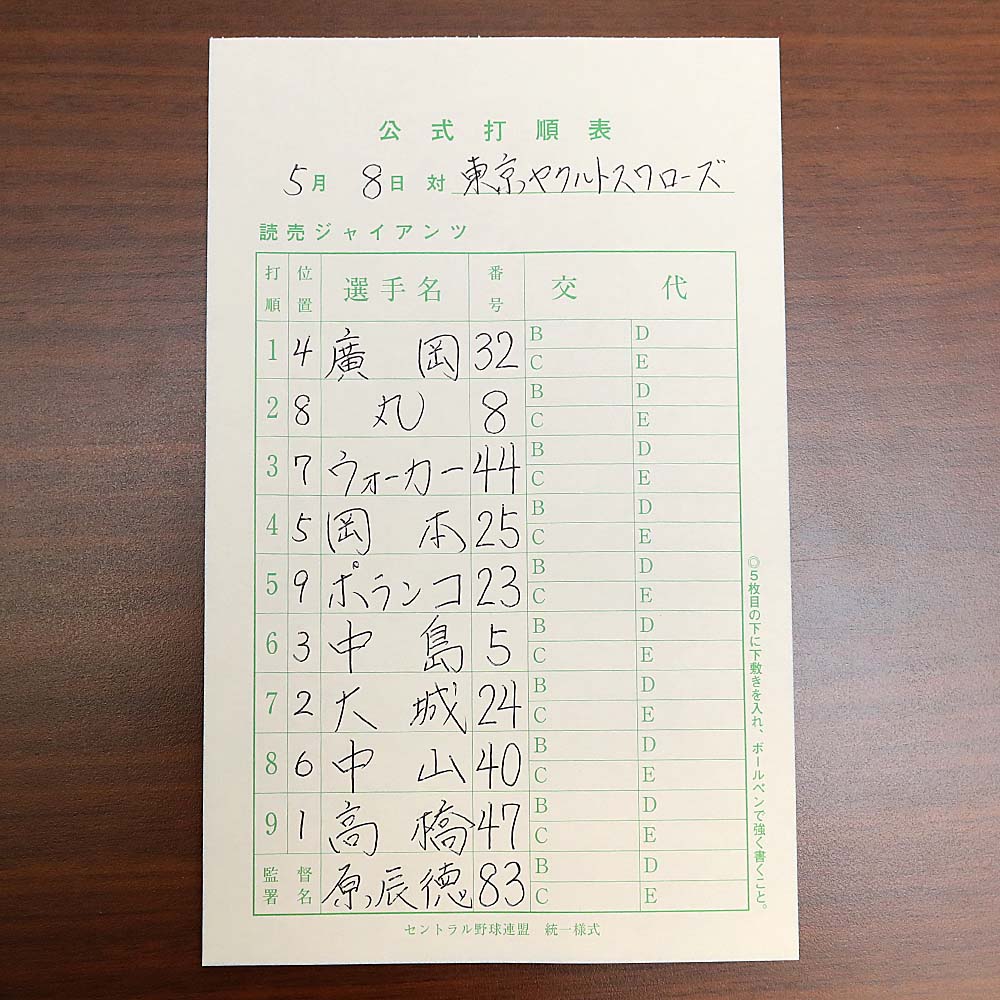 公式打順表
5月 8日 対 東京ヤクルトスワローズ
読売ジャイアンツ
打順 位置 選手名 番号 交代
1 4 廣岡 32 B D
C E
2 8 丸 8 B D
C E
3 7 ウォーカー 44 B D
C E
4 5 岡本 25 B D
C E
5 9 ポランコ 23 B D
C E
6 3 中島 5 B D
C E
7 2 大城 24 B D
C E
8 6 中山 40 B D
C E
9 1 高橋 47 B D
C E
監督署名 原辰徳 83 B D
C E
◎5枚目の下に下敷きを入れ、ボールペンで強く書くこと。
セントラル野球連盟 統一様式